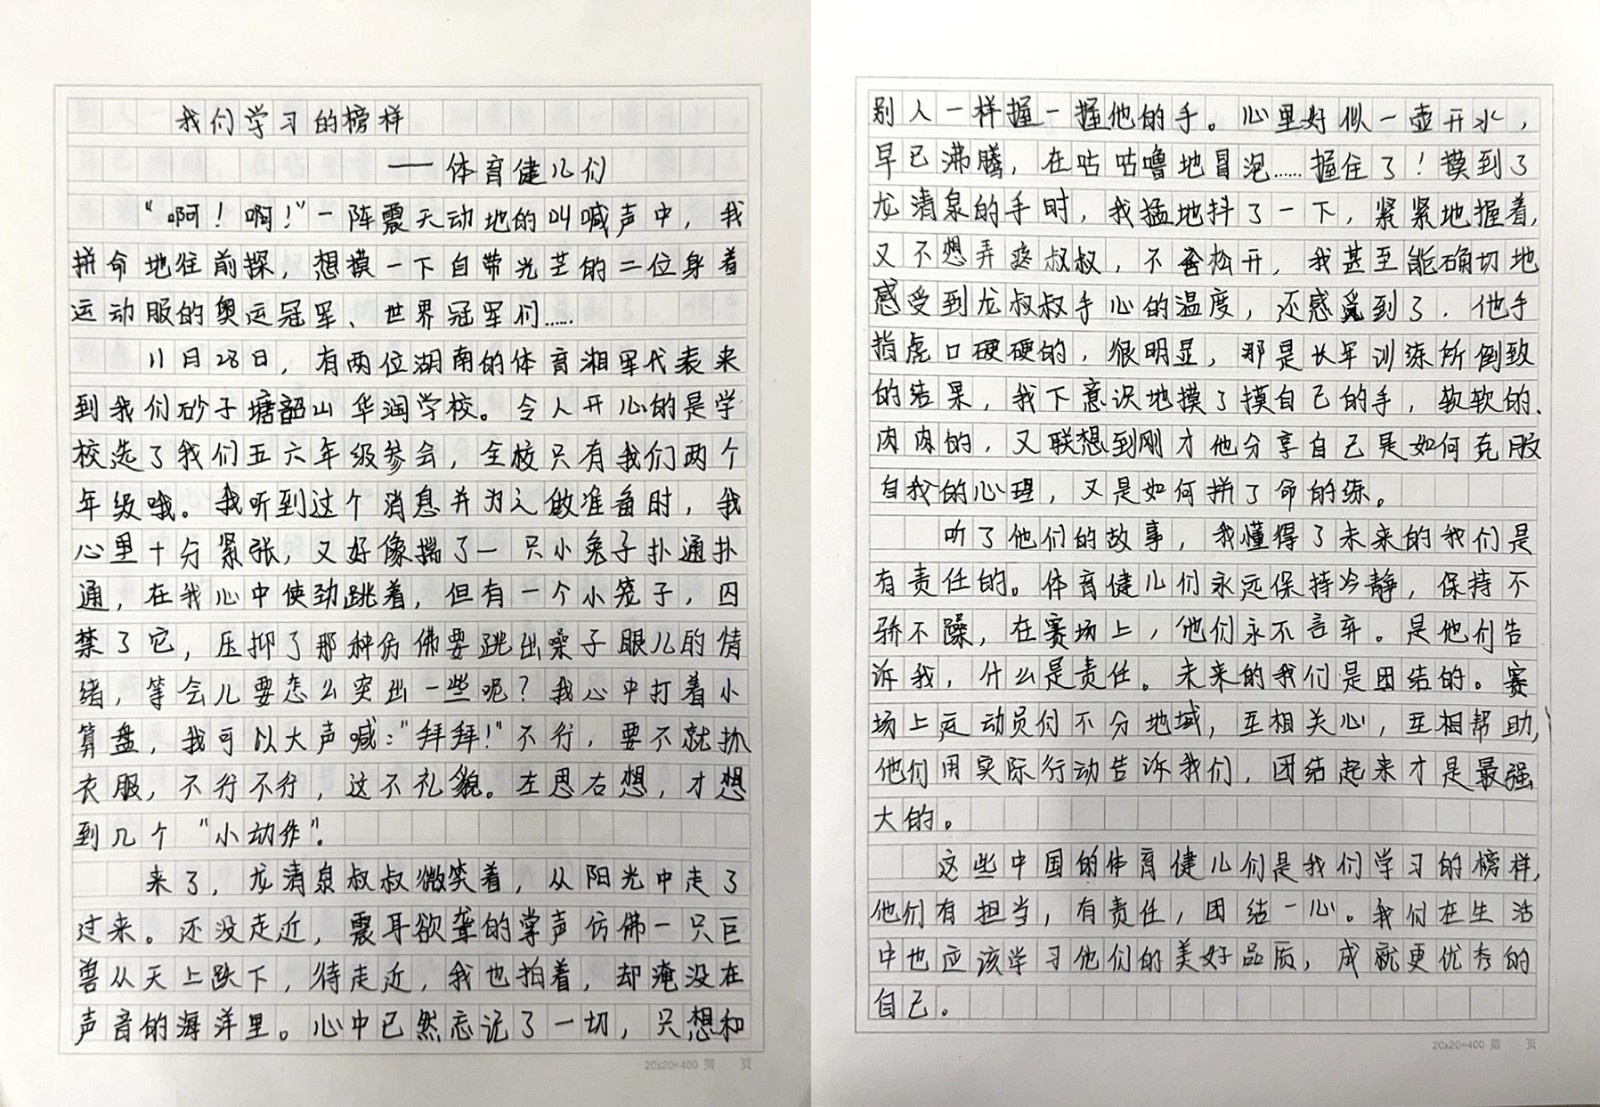 我们学习的榜样
——体育健儿们
“啊！啊！”一阵震天动地的叫喊声中，我
拼命地往前探，想摸一下自带光芒的二位身着
运动服的奥运冠军、世界冠军们……
11月28日，有两位湖南的体育湘军代表来
到我们砂子塘韶山华润学校。令人开心的是学
校选了我们五六年级参会，全校只有我们两个
年级哦。我听到这个消息并为之做准备时，我
心里十分紧张，又好像揣了一只小兔子扑通扑
通，在我心中使劲跳着，但有一个小笼子，囚
禁了它，压抑了那种仿佛要跳出嗓子眼儿的情
绪，等会儿要怎么突出一些呢？我心中打着小
算盘，我可以大声喊：“拜拜！”不行，要不就抓
衣服，不行不行，这不礼貌。左思右想，才想
到几个“小动作”。
来了，龙清泉叔叔微笑着，从阳光中走了
过来。还没走近，震耳欲聋的掌声仿佛一只巨
兽从天上跌下，待走近，我也拍着，却淹没在
声音的海洋里。心中已然忘记了一切，只想和
别人一样握一握他的手。心里好似一壶开水，
早已沸腾，在咕咕噜地冒泡……握住了！摸到了
龙清泉的手时，我猛地抖了一下，紧紧地握着，
又不想弄疼叔叔，不舍松开，我甚至能确切地
感受到龙叔叔手心的温度，还感觉到了．他手
指虎口硬硬的，很明显，那是长年训练所倒致
的结果，我下意识地摸了摸自己的手，软软的、
肉肉的，又联想到刚才他分享自己是如何克服
自我的心理，又是如何拼了命的练。
听了他们的故事，我懂得了未来的我们是
有责任的。体育健儿们永远保持冷静，保持不
骄不躁，在赛场上，他们永不言弃。是他们告
诉我，什么是责任。未来的我们是团结的。赛
场上运动员们不分地域，互相关心，互相帮助，
他们用实际行动告诉我们，团结起来才是最强
大的。
这些中国的体育健儿们是我们学习的榜样，
他们有担当，有责任，团结一心。我们在生活
中也应该学习他们的美好品质，成就更优秀的
自己。
20x20=400 第 页
20x20=400 第 页